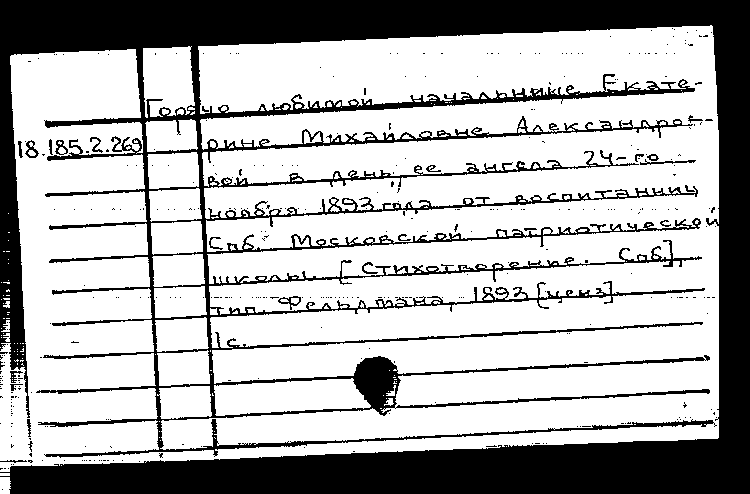 Горячо любимой начальнице Екате-
18.185.2.269 рине Михайловне Александро-
вой в день ее ангела 24-го
ноября 1893 года от воспитанниц
Спб. Московской патриотической
школы. [Стихотворение. Спб.],
тип. Фельдмана, 1893 [ценз].
1с.